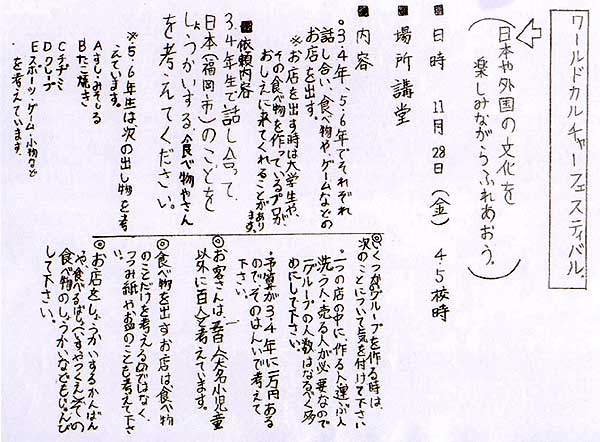 ワールドカルチャーフェスティバル
日本や外国の文化を
楽しみながらふれあおう。
■日時 11月28日(金) 4.5校時
■場所 講堂
■内容
○3.4年、5.6年でそれぞれ
話し合い、食べ物や、ゲームなどの
お店を出す。
※お店を出す時は大学生や、
その食べ物を作っているプロが、
おしえに来てくれることがあり
ます。
■依頼内容
3.4年生で話し合って、
日本(福岡市)のことを
しょうかいする、食べ物やさん
を考えてください。
※5.6年生は次の出し物を考
えています。
Aすし・みそしる
Bたこ焼き
Cチヂミ
Dクレープ
Eスポーツ・ゲーム・小物など
を考えています。
◎いくつかグループを作る時は、
次のことについて気を付けて下さい
・一つの店の中に、作る人、運ぶ人
洗う人、売る人が必要なので
一グループの人数はなるべく多
めにして下さい。
・予算が3.4年に一万円ある
ので、そのはんいで考えて
下さい。
◎お客さんは、百人
以外に百人と考えています。
◎食べ物を出すお店は、食べ物
のことだけを考えるのではなく、
つつみ紙やお皿のことも考えて下さ
い。
◎お店をしょうかいするかんばん
や、食べるばしょ(いすやつくえ)、その
食べ物のしょうかいなどもじゅんび
して下さい。